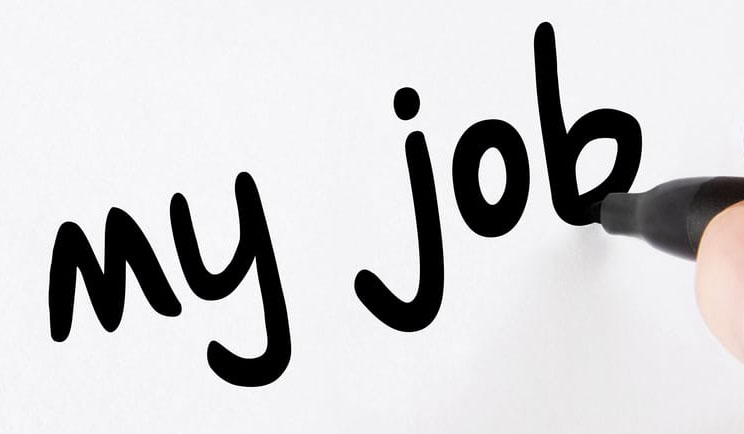 my job